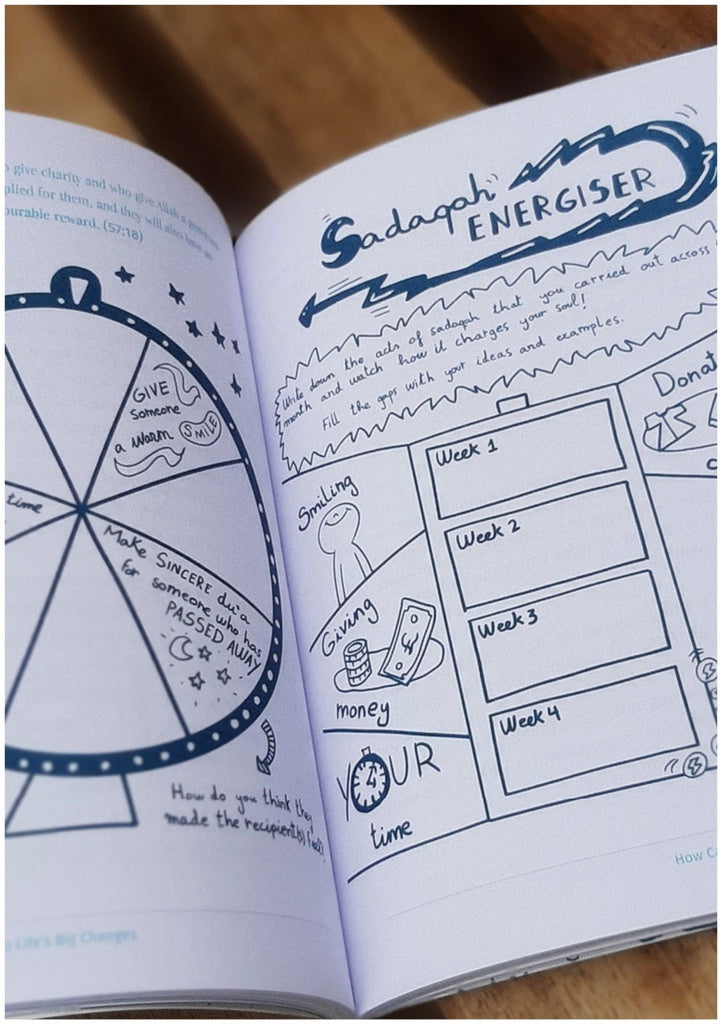 give charity and who give Allah a
plied for them, and they will also have an
ourable reward. (57:18)
GIVE
Someone
a warm SMILE
time
Make SINCERE du'a
for someone who has
PASSED AWAY
How do you think they
made the recipient(s) feel?
o Life's Big Changes
Sadaqah
ENERGISER
Write down the acts of sadaqah that you carried out across
month and watch how it charges your soul!
Fill the gaps with your ideas and examples.
Smiling
Giving
money
YOUR
time
Week 1
Week 2
Week 3
Week 4
Donat
How Ca